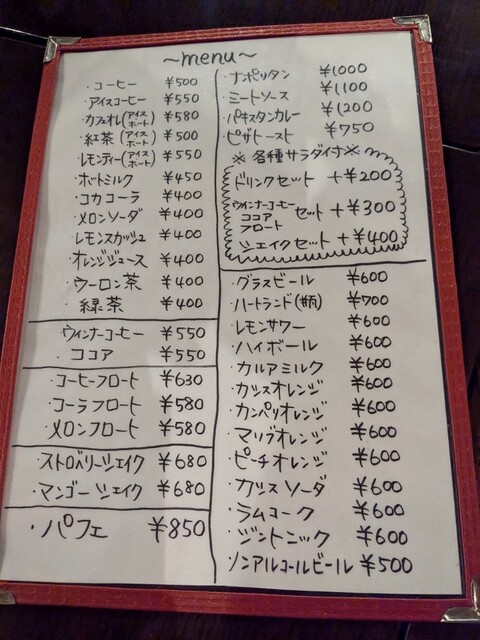 ～menu～
・コーヒー ￥500
アイスコーヒー ￥550
カフェオレ(アイスホート) ￥580
・紅茶(アイスホート) ￥500
レモンティー(アイスホート) ￥550
・ホットミルク ￥450
・コカコーラ ￥400
・メロンソーダ ￥400
・レモンスカッシュ ￥400
・オレンジジュース ￥400
・ウーロン茶 ￥400
・緑茶 ￥400
・ウィンナーコーヒー ￥550
・ココア ￥550
・コーヒーフロート ￥630
・コーラフロート ￥580
・メロンフロート ￥580
・ストロベリーシェイク ￥680
・マンゴーシェイク ￥680
・パフェ ￥850
・ナポリタン ￥1000
・ミートソース ￥1100
・パキスタンカレー ￥1200
・ピザトースト ￥750
※各種サラダ付※
ドリンクセット +￥200
ウィンナーコーヒー
ココア
フロート
セット +￥300
シェイクセット +￥400
・グラスビール ￥600
・ハートランド(中瓶) ￥700
・レモンサワー ￥600
・ハイボール ￥600
・カルアミルク ￥600
・カシスオレンジ ￥600
・カンパリオレンジ ￥600
・マリブオレンジ ￥600
・ピーチオレンジ ￥600
・カシスソーダ ￥600
・ラムコーク ￥600
・ジントニック ￥600
・ノンアルコールビール ￥500